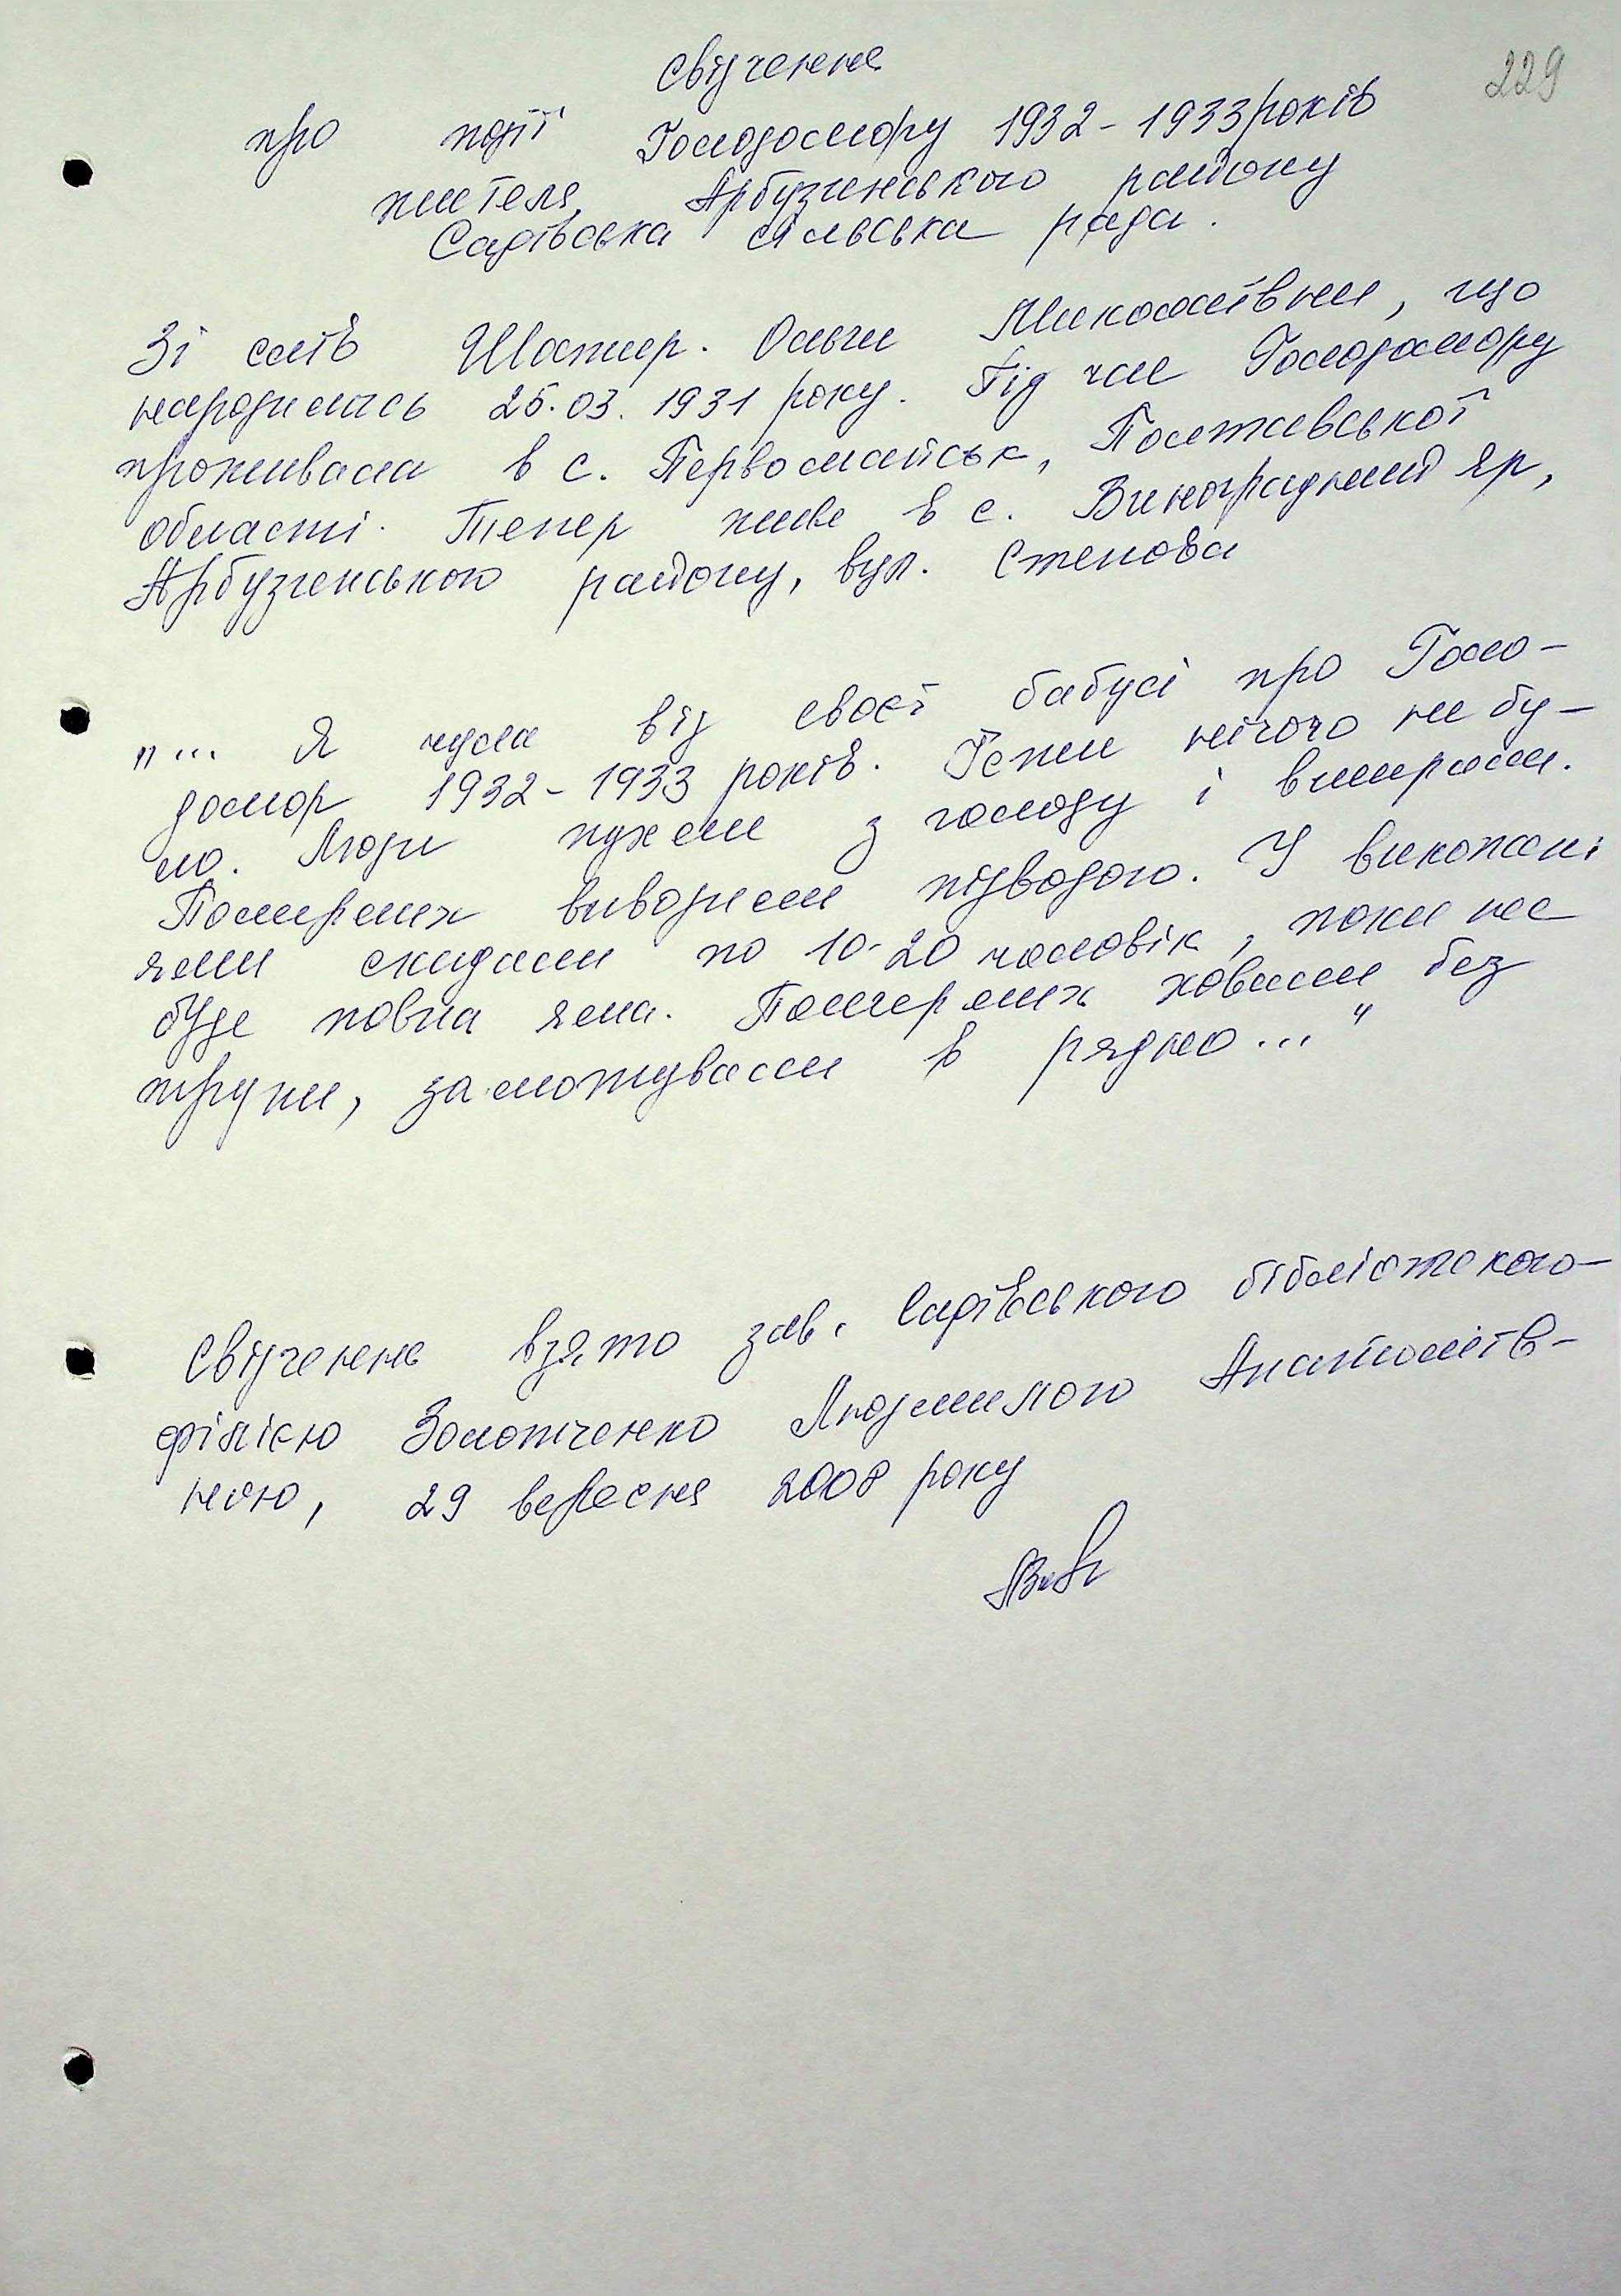 229
Свідчення
про події Голодомору 1932-1933 років
жителя Арбузинського району
Садівська сільська рада.
Зі слів Ольги Миколаївни, що
народилась 25.03.1931 року. Під час Голодомору
проживала в с. Первомайськ, Полтавської
області. Тепер живе в с. Виноградний Яр,
Арбузинського району, вул. Степова
"... Я чула від своєї бабусі про Голо-
домор 1932-1933 років. Їсти нічого не бу-
ло. Люди пухли з голоду і вмирали.
Померлих вивозили підводою. У викопані
ями скидали по 10-20 чоловік, поки не
буде повна яма. Померлих ховали без
труни, замотували в рядно..."
Свідчення взято зав. Садівською бібліотекою-
філією Золотченко Людмилою Анатоліїв-
ною, 29 вересня 2008 року